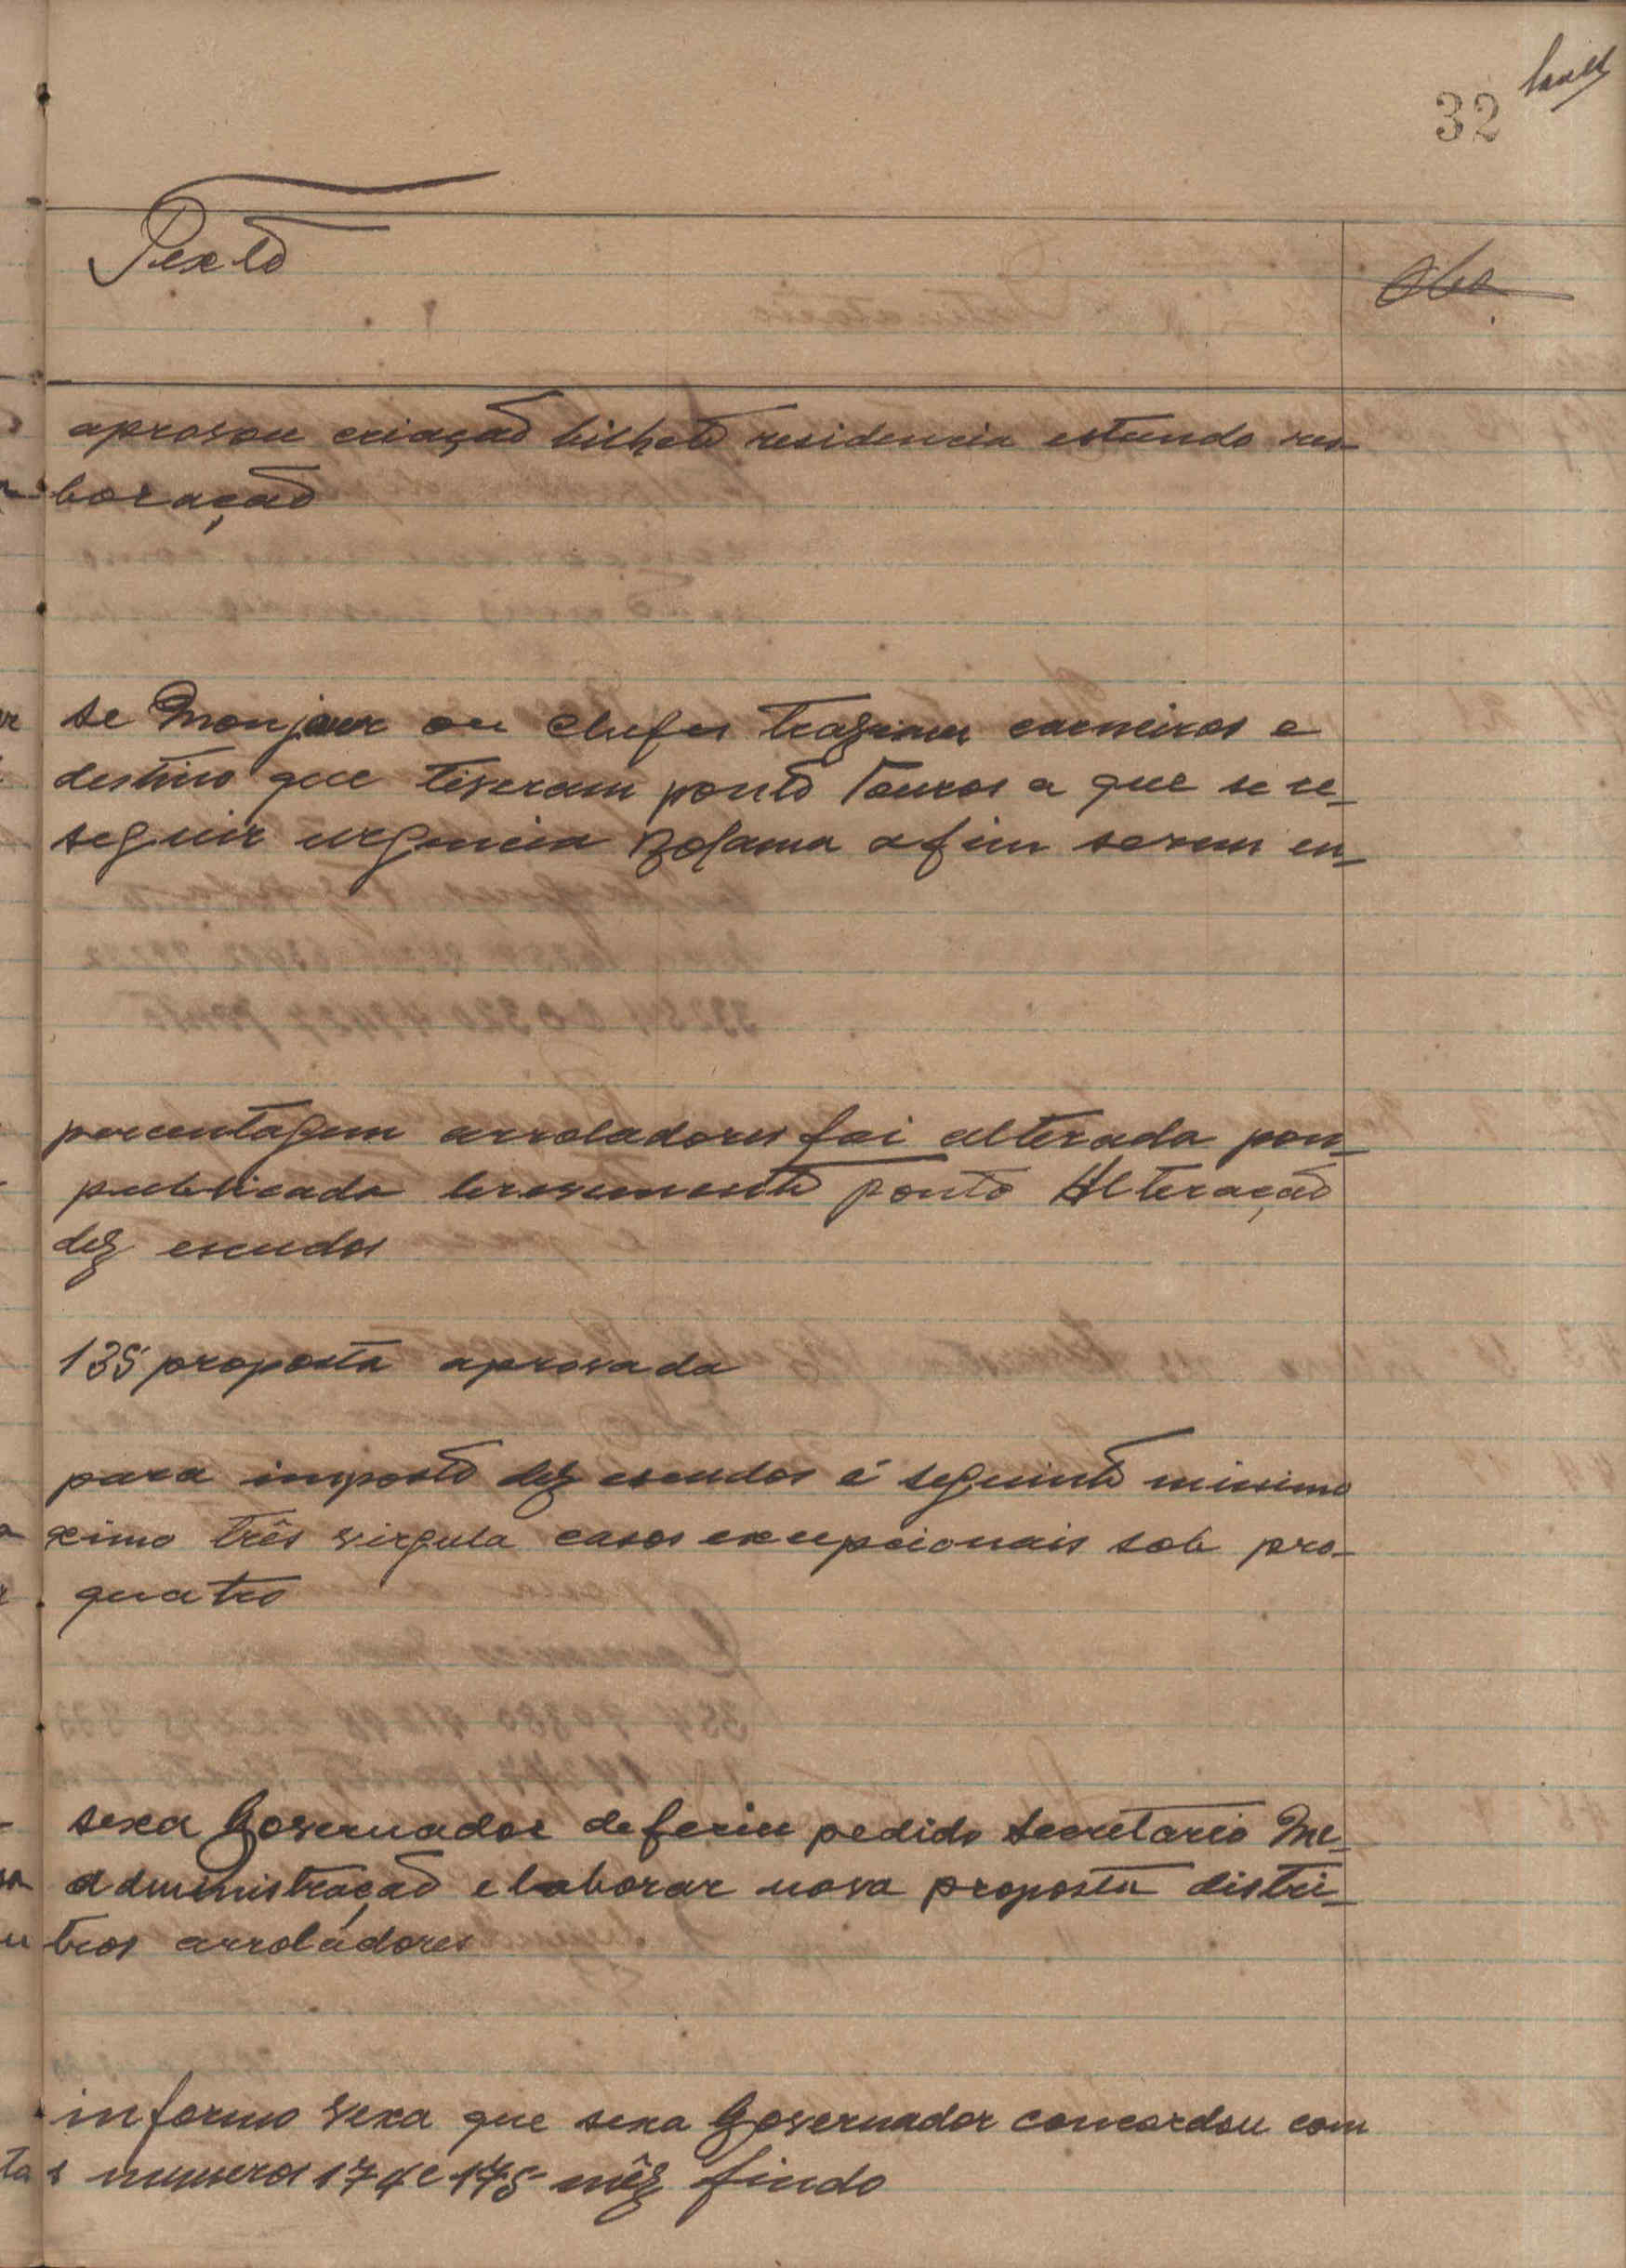 32
Texto
Obs
aprovou criação bilhete residencia estando res-
boração
se Monjour ou chefes traziam carneiros e
destino que tiveram ponto Touros a que se re-
seguir urgencia Bolama afim serem en-
percentagem arroladores foi alterada pon-
publicada brevemente ponto Alteração
dez escudos
135 proposta aprovada
para imposto dez escudos é seguinte minimo
ximo três virgula casos excepcionais sob pro-
quatro
sexa Governador deferiu pedido Secretario Me-
administração elaborar nova proposta distri-
tros arroladores
informo vexa que sexa Governador concordou com
s numeros 174 e 175 mêz findo